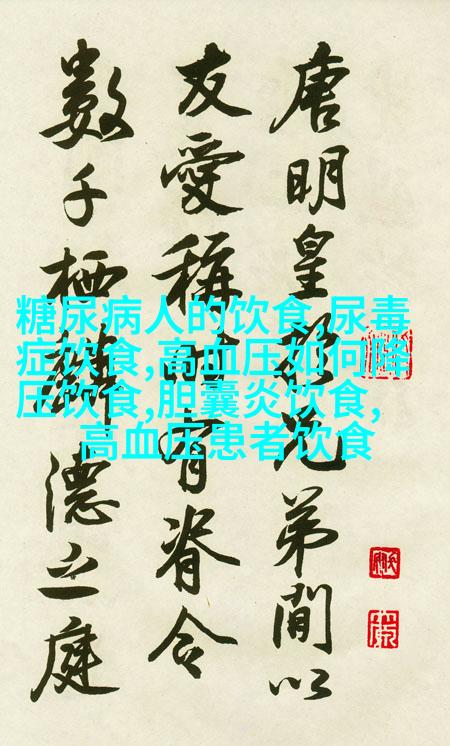 糖尿病人的饮食,尿毒
症饮食,高血压如何降
压饮食,胆囊炎饮食,
高血压患者饮食
唐明皇於兄弟間以
友愛稱時有脊令
數千栖麟德之庭